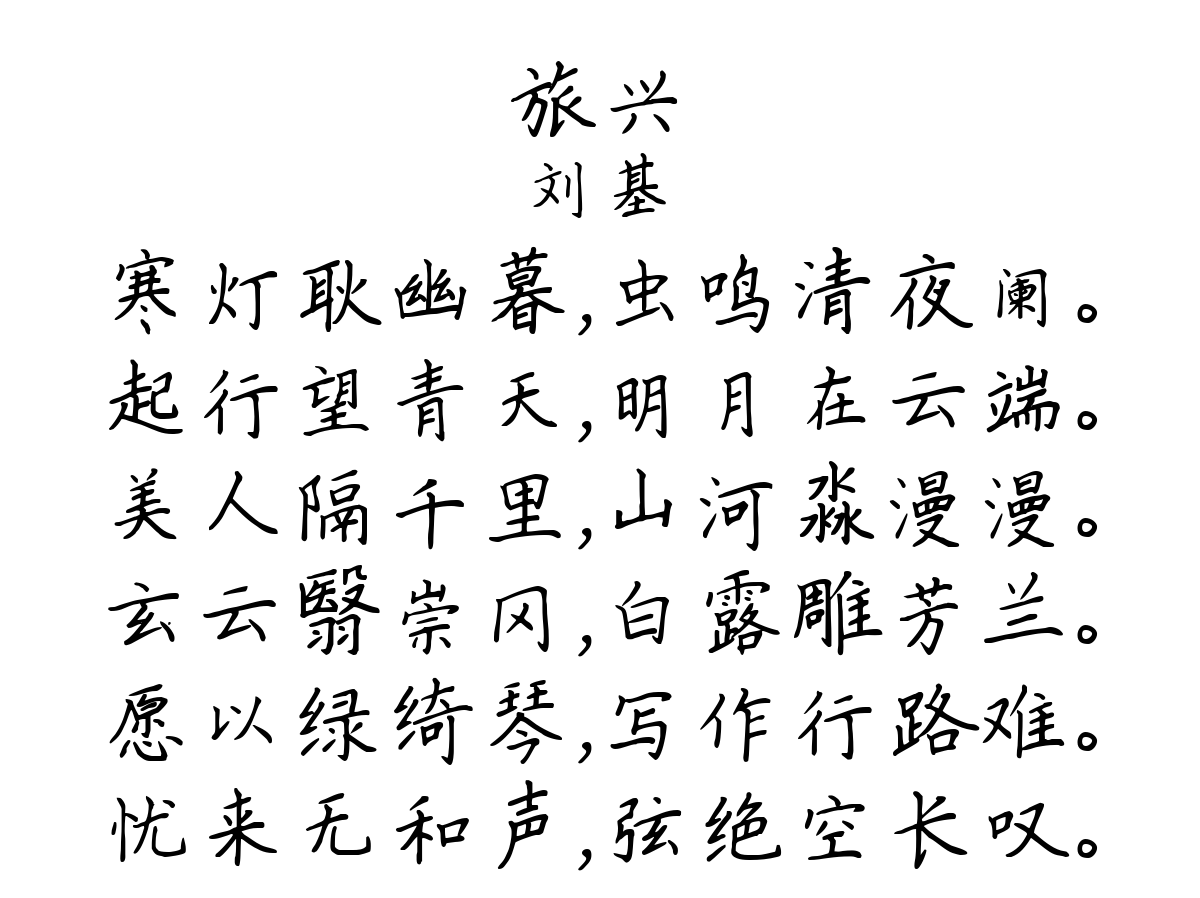 旅兴
刘基
寒灯耿幽暮,虫鸣清夜阑。
起行望青天,明月在云端。
美人隔千里,山河淼漫漫。
玄云翳崇冈,白露雕芳兰。
愿以绿绮琴,写作行路难。
忧来无和声,弦绝空长叹。